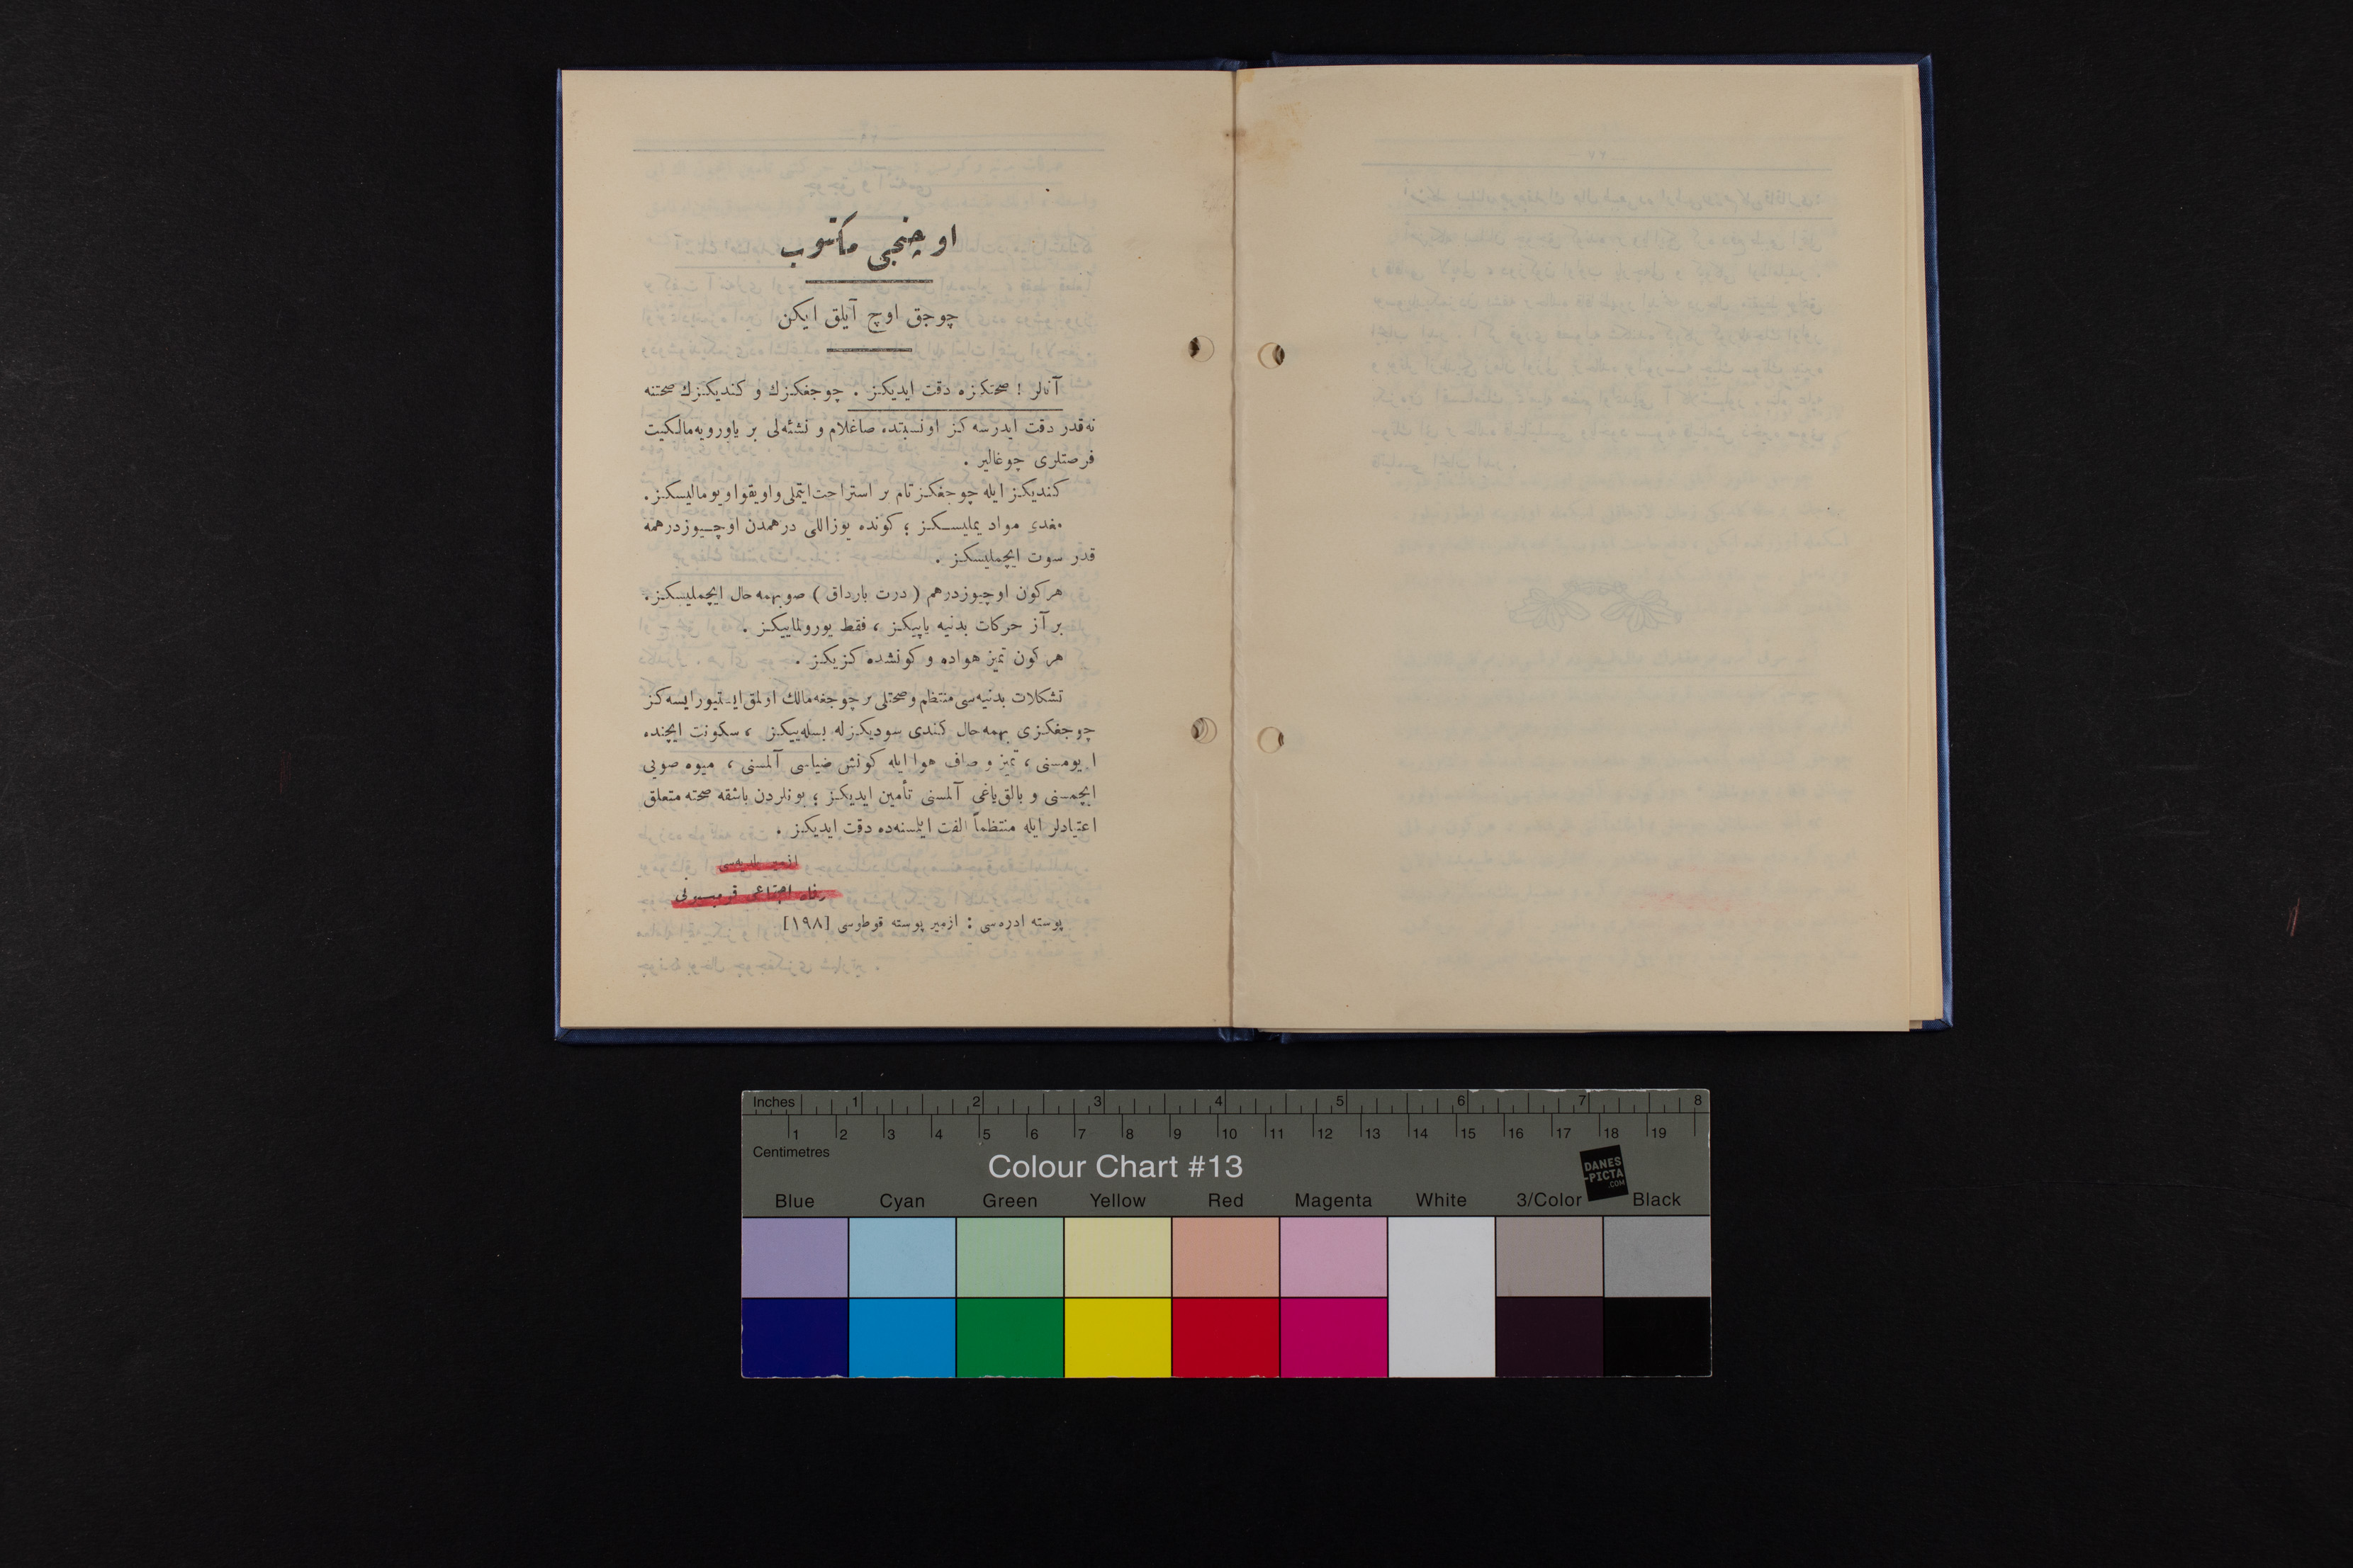 اوچنجی مكتوب
چوجق اوچ آیلق ایكن
آنالر ! صحتكزه دقت ایدیكز . چوجغكزك و كندیكزك صحتنه
نه‌قدر دقت ایدرسه‌كز اونسبتده صاغلام و نشئه‌لی بر یاورویه‌مالكیت
فرصتلری چوغالیر .
كندیكز ایله چوجغكز تام بر استراحت ایتملی و اویقو اویومالیسكز .
مغدی مواد یملیسكز ؛ كونده یوزاللی درهمدن اوچیوزدرهمه
قدر سوت ایچملیسكز .
هركون اوچیوزدرهم ( درت بارداق ) صو بهمه‌حال ایچملیسكز .
بر آز حركات بدنیه یاپیكز ، فقط یورولماییكز .
هر كون تمیز هواده و كونشده كزیكز .
تشكلات بدنیه‌سی منتظم و صحتلی بر چوجغه مالك اولمق ایستیور ایسه‌كز
چوجغكزی بهمه‌حال كندی سودیكزله بسله‌ییكز ، سكونت ایچنده
اویومسنی ، تمیز و صاف هوا ایله كونش ضیاسی آلمسنی ، میوه صویی
ایچمسنی و بالق‌یاغی آلمسنی تأمین ایدیكز ؛ بونلردن باشقه صحته متعلق
اعتیادلر ایله منتظماً الفت ایتمسنه‌ده دقت ایدیكز .
ازمیر بلدیه‌سی
رفاه اجتماعی قومیسیونی
پوسته ادره‌سی : ازمیر پوسته قوطوسی [۱۹۸]
Inches 1 2 3 4 5 6 7 8
1 2 3 4 5 6 7 8 9 10 11 12 13 14 15 16 17 18 19
Centimetres
Colour Chart #13
DANES
-PICTA
.COM
Blue Cyan Green Yellow Red Magenta White 3/Color Black